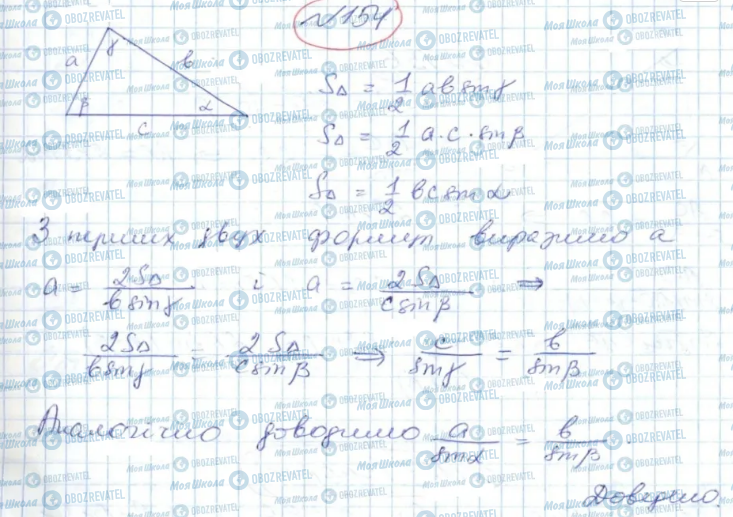 №1154
a γ b
β α
c
S△ = 1/2 ab sin γ
S△ = 1/2 a·c·sin β
S△ = 1/2 bc sin α
З перших двух формул виразимо a
a = 2S△/(b sin γ) і a = 2S△/(c sin β) ⇒
2S△/(b sin γ) = 2S△/(c sin β) ⇒ c/sin γ = b/sin β
Аналогічно доводимо a/sin α = b/sin β
Доведено.
Моя Школа OBOZREVATEL